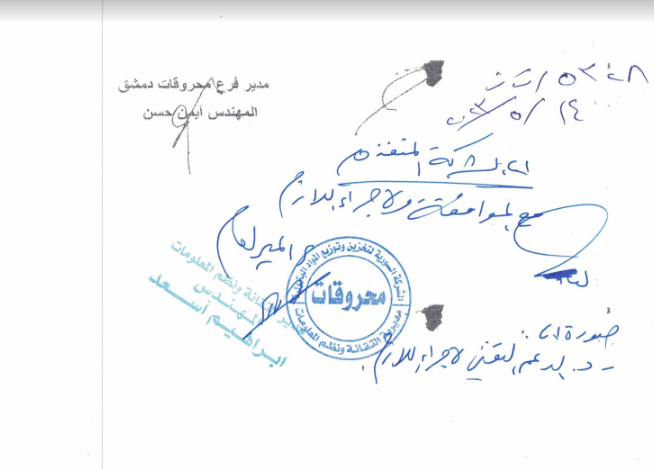 مدير فرع محروقات دمشق
المهندس ايمن حسن
١٤/٥/٢٠٣
الى الشركة المنفذة
مع الموافقة ولاجراء اللازم
المدير العام
الشركة السورية لتخزين وتوزيع المواد البترولية
محروقات
مديرية التقانة ونظم المعلومات
مدير التقانة ونظم المعلومات
المهندس
ابراهيم أسعد
صورة الى:
- د. الدعم التقني لاجراء اللازم.